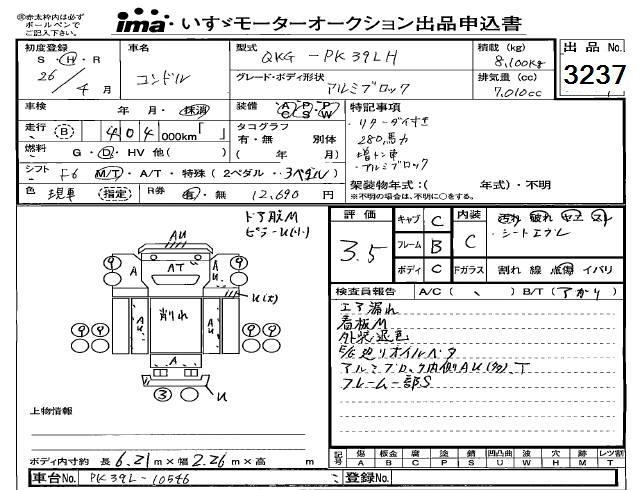 ㊟赤太枠内は必ず
ボールペンで
ご記入下さい。
ima いすゞモーターオークション出品申込書
初度登録
S・H・R
26/4月
車名
コンドル
型式
QKG-PK39LH
グレード・ボディ形状
アルミブロック
積載(kg)
8,100kg
排気量(cc)
7,010cc
出品No.
3237
車検 年 月・抹消
走行 B 404 000km「 」
燃料 G・D・HV 他( )
シフト F6 M/T・A/T・特殊(2ペダル・3ペダル)
色 現車 指定 R券 有・無 12,690 円
装備 A/C P/S P/W
タコグラフ
有・無 別体
( 年 月)
特記事項
・リターダ付き
280馬力
増トン車
・アルミブロック
架装物年式:( 年式)・不明
※不明の場合は、不明に○をする。
ドア廻M
ピラーU(小)
AU
AT
A
U
削れ
A
U
③
評価
3.5
キャブ C
フレーム B
ボディ C
内装
C
汚れ 破れ コゲ スレ
・シートエグレ
Fガラス 割れ 線 点傷 イバリ
検査員報告 A/C( 、 ) B/T(アガリ)
エア漏れ
看板M
外装退色
E/G廻りオイルベタ
アルミブロック内側AU(多).T
フレーム一部S
上物情報
ボディ内寸約 長 6.21 m×幅 2.26 m×高 m
記号 傷 板金 腐 塗 錆 凹凸曲 波 穴 跡 レツ割
A B C P S U W H M T
車台No. PK39L-10546
登録No.